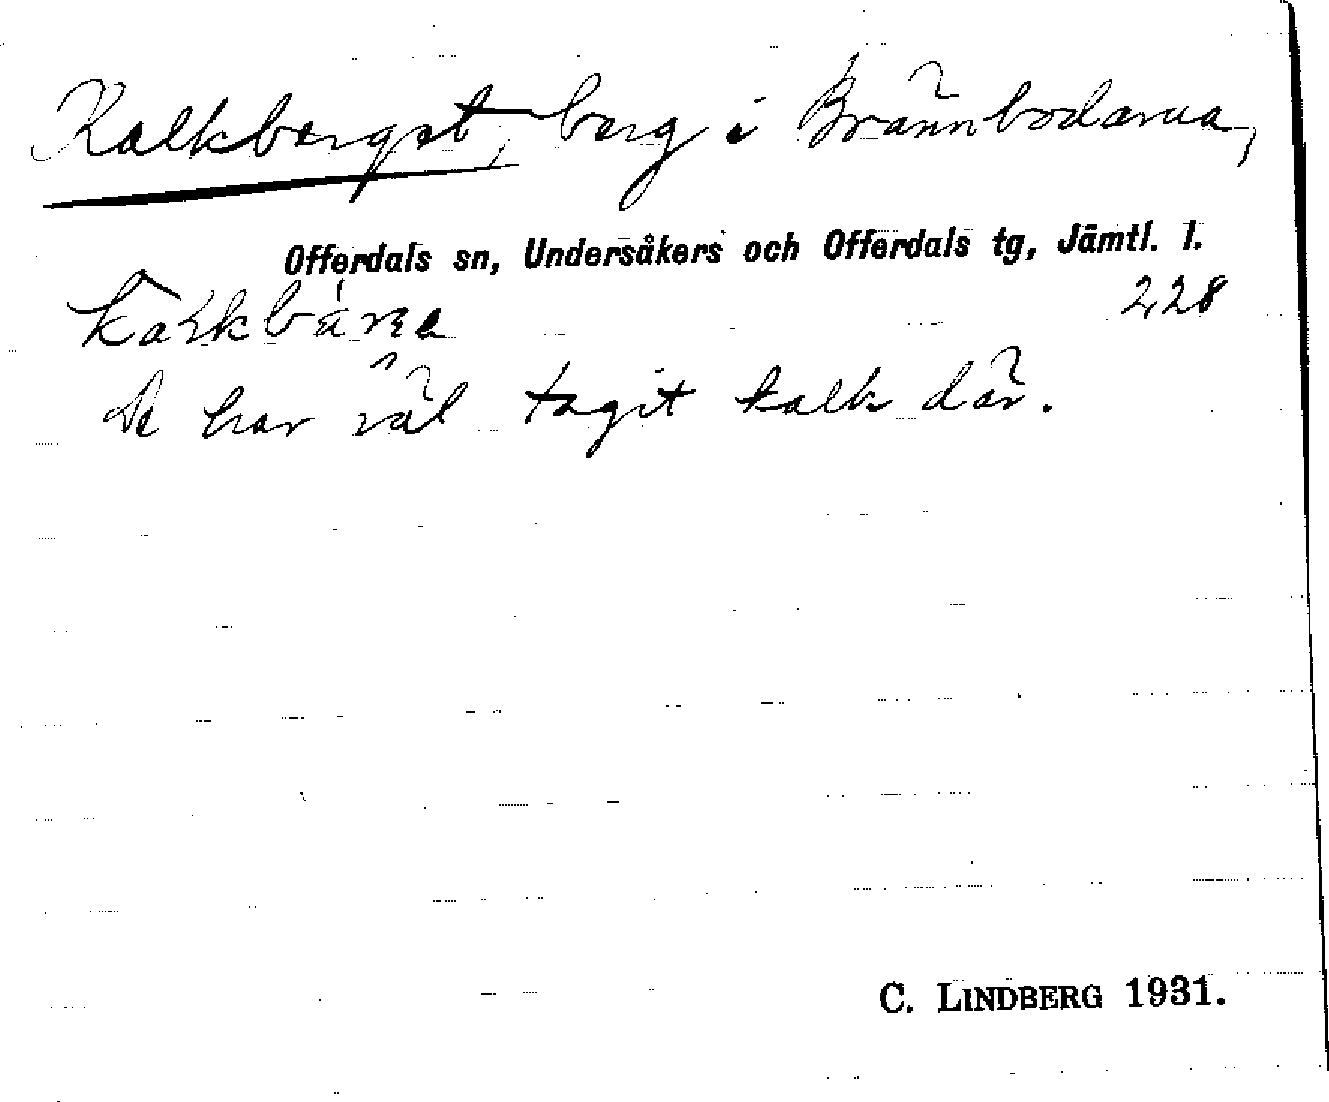 Kalkberget, berg i Brännbodarna,
Offerdals sn, Undersåkers och Offerdals tg, Jämtl. l.
228
De har väl tagit kalk där.
C. LINDBERG 1931.